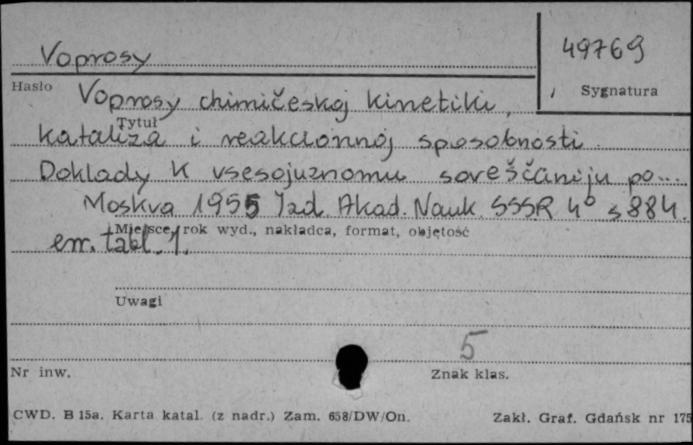 Voprosy
49769
Hasło
Sygnatura
Voprosy chimičeskoj kinetiki,
Tytuł
kataliza i reakcionnoj sposobnosti.
Doklady k vsesojuznomu soveščaniju po...
Moskva 1955 Izd. Akad. Nauk SSSR 4° s 884.
Miejsce, rok wyd., nakładca, format, objętość
err. tabl. 1.
Uwagi
5
Nr inw.
Znak klas.
CWD. B 15a. Karta katal. (z nadr.) Zam. 658/DW/On.
Zakł. Graf. Gdańsk nr 175